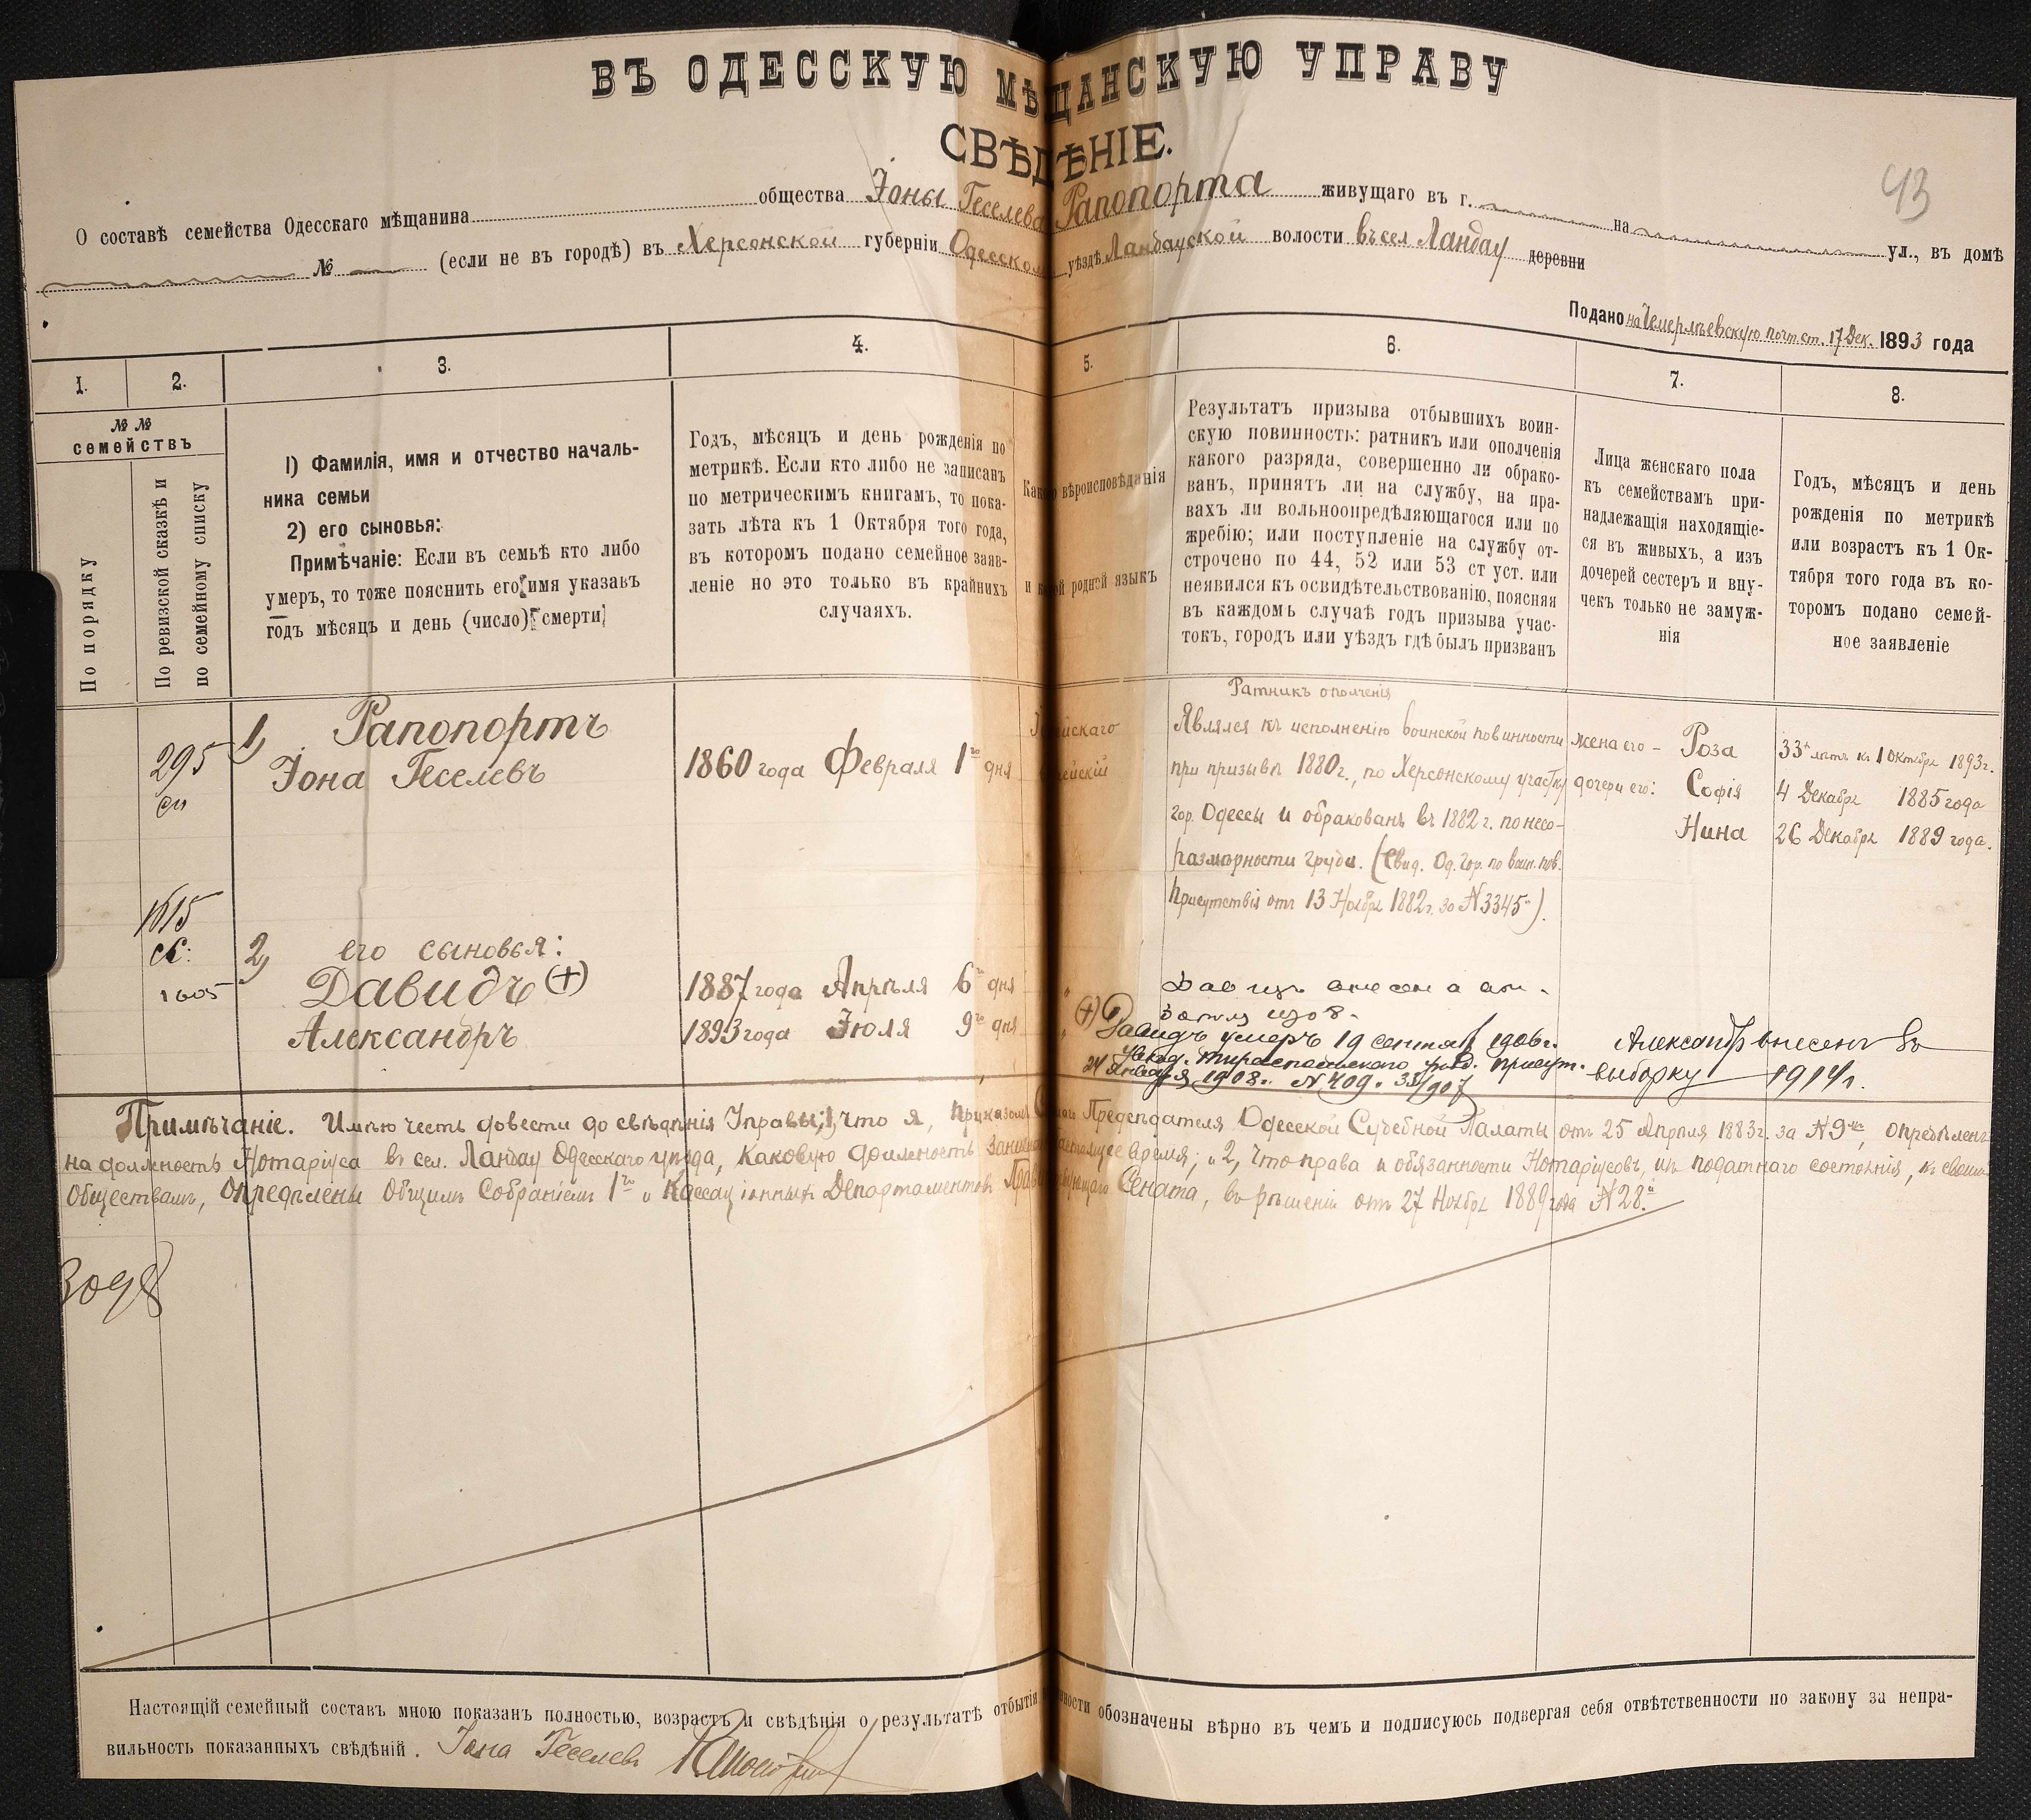 ВЪ ОДЕССКУЮ МѢЩАНСКУЮ УПРАВУ
СВѢДѢНІЕ.
43
О составѣ семейства Одесскаго мѣщанина общества Іоны Геселева Рапопорта живущаго въ г. на ул., въ домѣ
№ (если не въ городѣ) въ Херсонской губерніи Одесскомъ уѣздѣ Ландауской волости въ сел Ландау деревни
Подано на почт ст. 17 Дек. 1893 года
1.
2.
3.
4.
5.
6.
7.
8.
№ №
семействъ
По порядку
По ревизской сказкѣ и
по семейному списку
1) Фамилія, имя и отчество началь-
ника семьи
2) его сыновья:
Примѣчаніе: Если въ семьѣ кто либо
умеръ, то тоже пояснить его имя указавъ
годъ мѣсяцъ и день (число) смерти
Годъ, мѣсяцъ и день рожденія по
метрикѣ. Если кто либо не записанъ
по метрическимъ книгамъ, то пока-
зать лѣта къ 1 Октября того года,
въ которомъ подано семейное заяв-
леніе но это только въ крайнихъ
случаяхъ.
вѣроисповѣданія
родной языкъ
Результатъ призыва отбывшихъ воин-
скую повинность: ратникъ или ополченія
какого разряда, совершенно ли обрако-
ванъ, принятъ ли на службу, на пра-
вахъ ли вольноопредѣляющагося или по
жребію; или поступленіе на службу от-
строчено по 44, 52 или 53 ст уст. или
неявился къ освидѣтельствованію, поясняя
въ каждомъ случаѣ годъ призыва учас-
токъ, городъ или уѣздъ гдѣ былъ призванъ
Лица женскаго пола
къ семействамъ при-
надлежащія находящіе-
ся въ живыхъ, а изъ
дочерей сестеръ и вну-
чекъ только не замуж-
нія
Годъ, мѣсяцъ и день
рожденія по метрикѣ
или возрастъ къ 1 Ок-
тября того года въ ко-
торомъ подано семей-
ное заявленіе
295
сп
1) Рапопортъ
Іона Геселевъ
1860 года Февраля 1го дня
Ратникъ ополченія
Являлся къ исполненію воинской повинности
при призывѣ 1880 г., по Херсонскому участку
гор. Одессы и обракованъ въ 1882 г. по несо-
размѣрности груди. (Свид. Од. Гор. по воин. пов.
Присутствія отъ 13 Ноября 1882 г. за №3345).
жена его – Роза 33 лѣтъ къ 1 Октября 1893 г.
дочери его: Софія 4 Декабря 1885 года
Нина 26 Декабря 1889 года.
1615
сб:
1605
2) его сыновья:
Давидъ (+) 1887 года Апрѣля 6го дня
Александръ 1893 года Іюля 9го дня
Давидъ
(+) Давидъ умеръ 19 сентяб 1906 г.
Тираспольскаго присут.
24 Января 1908 г. №409. 33/907
Александръ внесенъ въ
выборку 1914 г.
Примѣчаніе. Имѣю честь довести до свѣдѣнія Управы; 1, что я, приказомъ Предсѣдателя Одесской Судебной Палаты отъ 25 Апрѣля 1883 г. за №9, опредѣленъ
на должность Нотаріуса въ сел. Ландау Одесскаго уѣзда, каковую должность время; и 2, что права и обязанности Нотаріусовъ, изъ податнаго состоянія, къ своимъ
обществамъ, опредѣлены Общимъ Собраніемъ 1го и Кассаціонныхъ Департаментовъ Правительствующаго Сената, въ рѣшеніи отъ 27 Ноября 1889 года №28.
3098
Настоящій семейный составъ мною показанъ полностью, возрастъ и свѣдѣнія о результатѣ отбытія обозначены вѣрно въ чемъ и подписуюсь подвергая себя отвѣтственности по закону за непра-
вильность показанныхъ свѣдѣній. Іона Геселевъ Рапопортъ